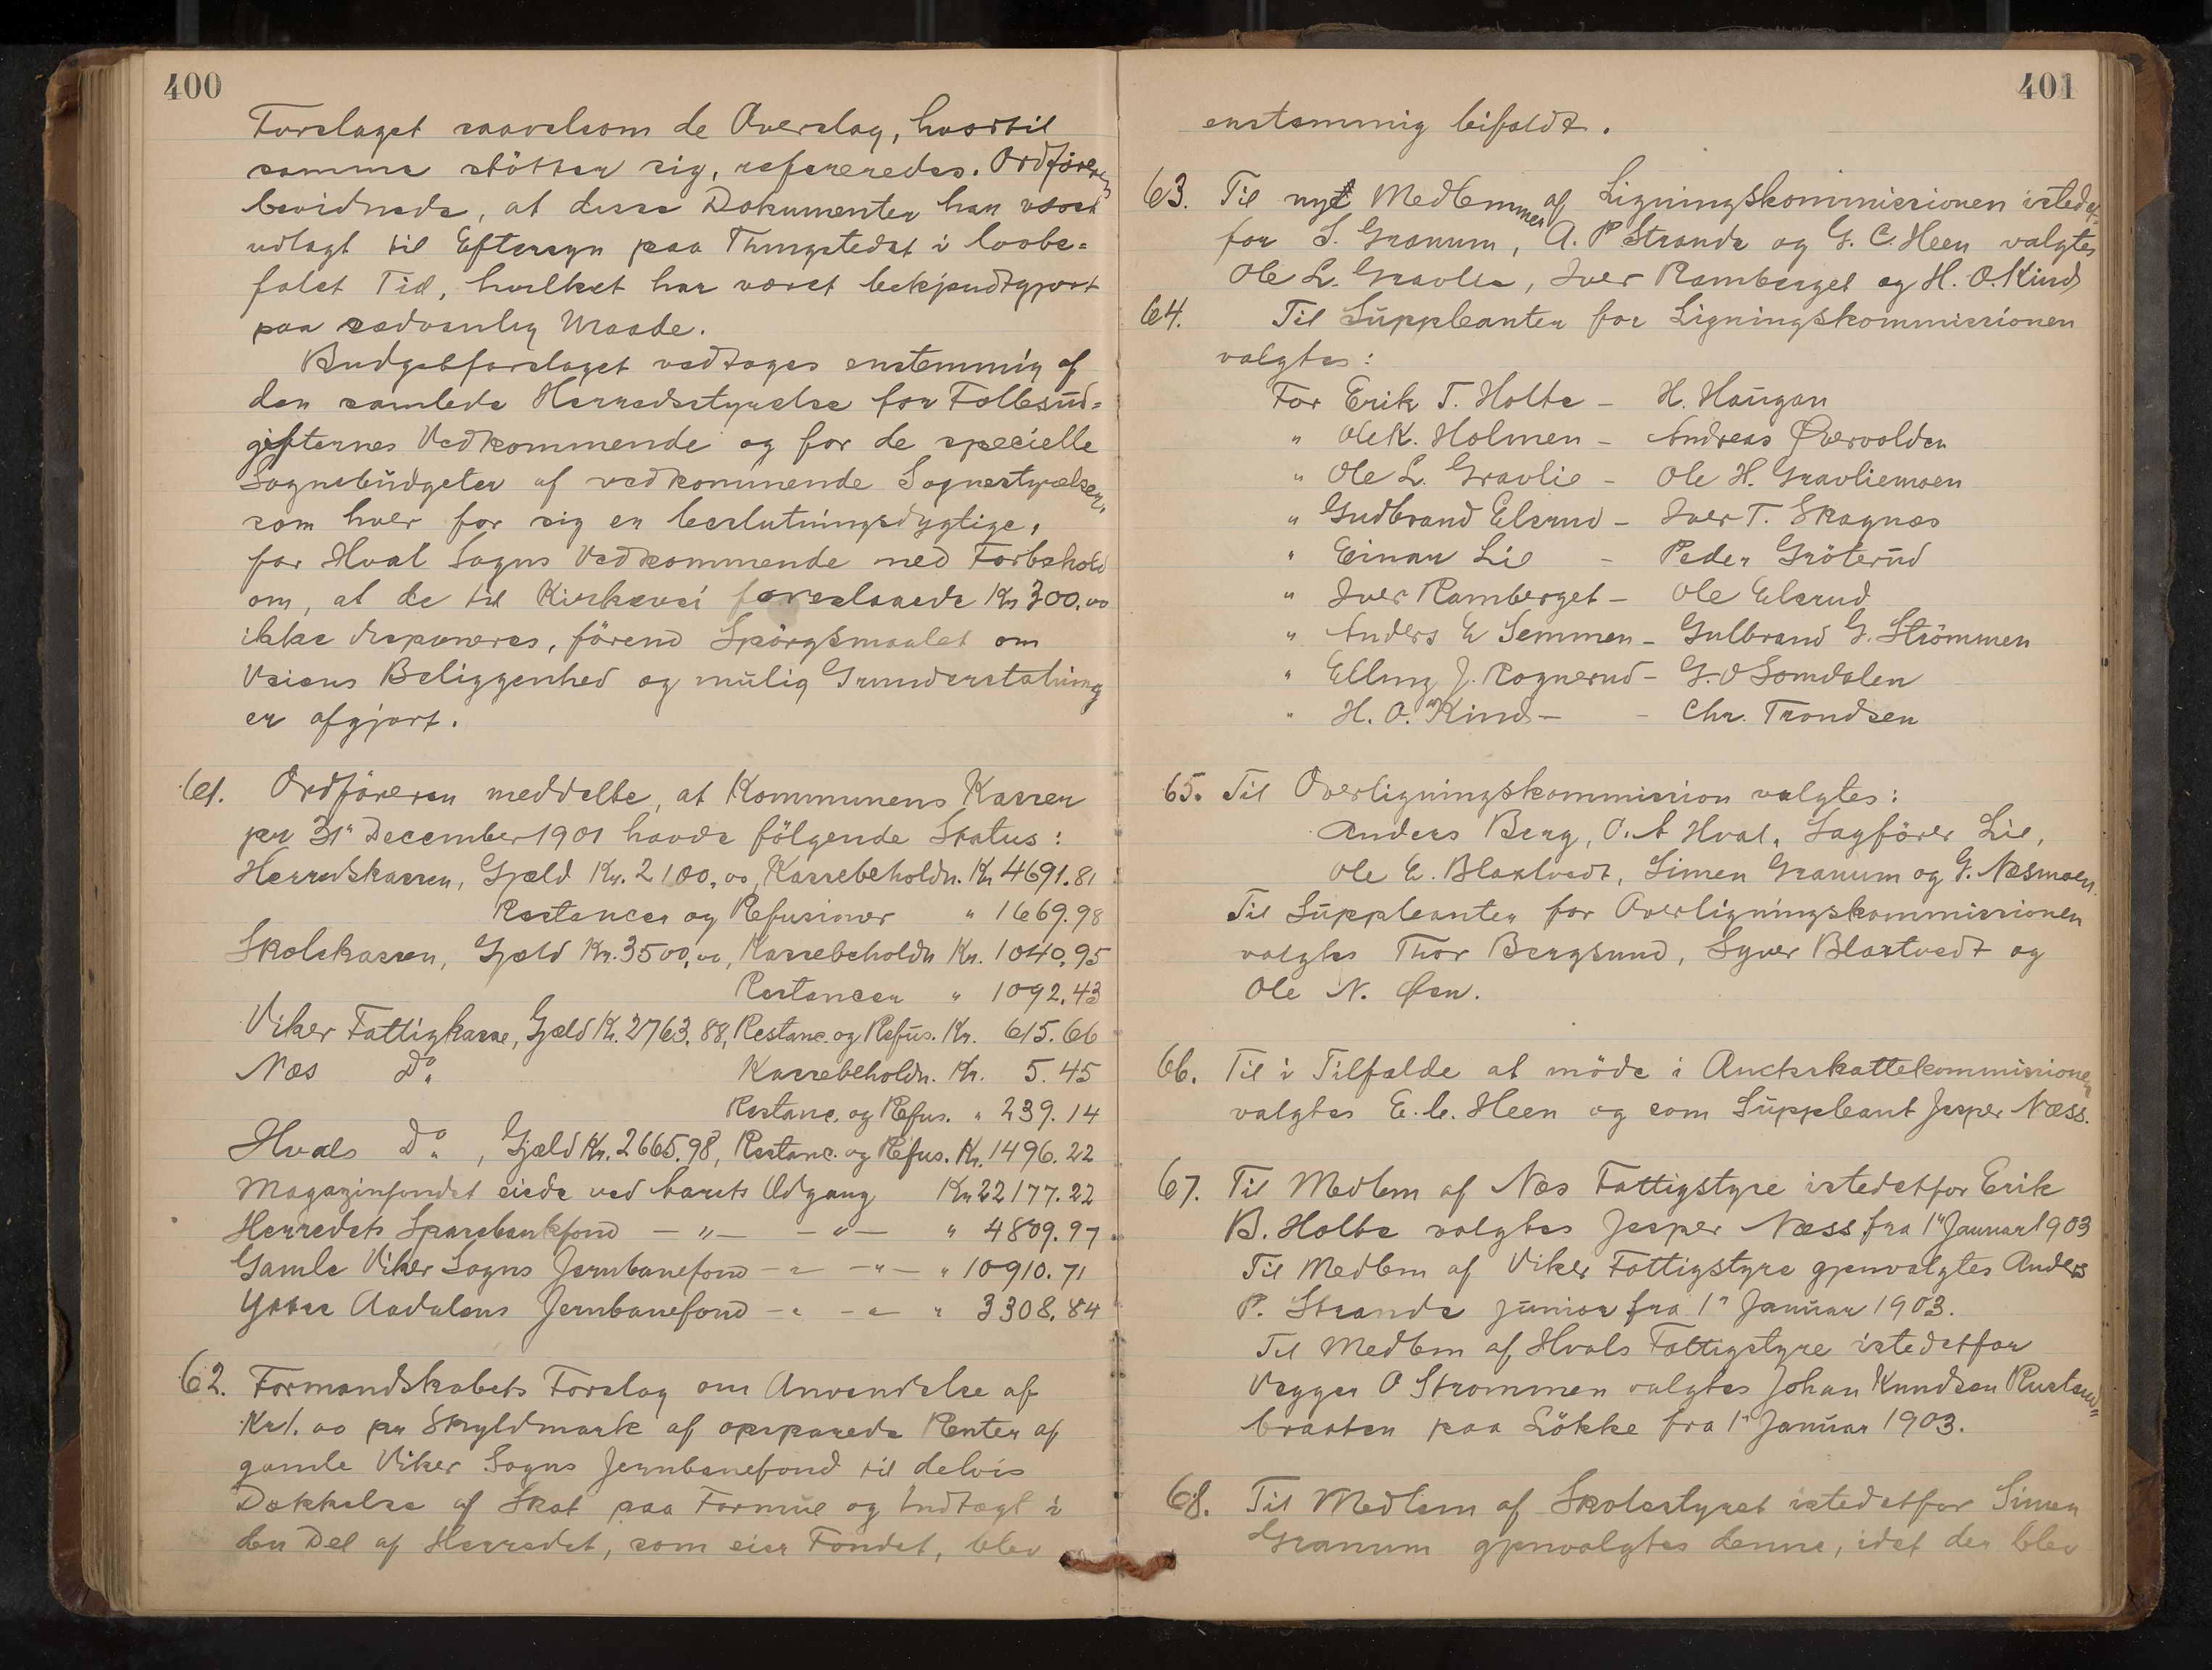 400
Forslaget saavelsom de Overslag, hvortil
samme stötter sig, refereredes. Ordföreren
bevidnede, at disse Dokumenter har været
udlagt til Eftersyn paa Thingstedet i lovbe=
falet Tid, hvilket har været bekjendtgjort
paa sædvanlig Maade.
Budgetforslaget vedtages enstemmig af
den samlede Herredsstyrelse for Fællesud=
gifternes Vedkommende og for de specielle
Sognebudgeter af vedkommende Sognestyrelser,
som hver for sig er beslutningsdygtige,
for Hval Sogns Vedkommende med Forbehold
om, at de til Kirkevei foreslaaede Kr 300.00
ikke disponeres, förend Spörgsmaalet om
Veiens Beliggenhed og mulig Grunderstatning
er afgjort.
61. Ordföreren meddelte, at Kommunens Kasser
pr 31" December 1901 havde fölgende Status:
Herredskassen, Gjæld Kr. 2100,00, Kassebeholdn. Kr 4691.81
Restancer og Refusioner " 1669.98
Skolekassen, Gjæld Kr. 3500,00, Kassebeholdn Kr. 1040.95
Restancer " 1092.43
Viker Fattigkasse, Gjæld Kr. 2763.88, Restanc. og Refus. Kr. 615.66
Næs Do. Kassebeholdn. Kr. 5.45
Restanc. og Refus. " 239.14
Hvals Do. , Gjæld Kr. 2665.98, Restanc. og Refus. Kr. 1496.22
Magazinfondet eiede ved Aarets Udgang Kr 22177.22
Herredets Sparebankfond — " — — " — " 4809.97
Gamle Viker Sogns Jernbanefond — " — " — " 10910.71
Ytre Aadalens Jernbanefond — " — " — " 3308.84
62. Formandskabets Forslag om Anvendelse af
Kr 1.00 pr Skyldmark af opsparede Renter af
gamle Viker Sogns Jernbanefond til delvis
Dækkelse af Skat paa Formue og Indtægt i
den Del af Herredet, som eier Fondet, blev
401
enstemmig bifaldt.
63. Til nye Medlemmer af Ligningskommissionen istedet=
for S. Granum, A. P Strande og G. C. Heen valgtes
Ole L. Gravlie, Iver Ramberget og H. O. Kind
64. Til Suppleanter for Ligningskommissionen
valgtes:
For Erik T. Holte – H. Haugan
" Ole K. Holmen – Andreas Övervolden
" Ole L. Gravlie – Ole H. Gravliemoen
" Gudbrand Elsrud – Iver T. Skagnæs
" Einar Lie – Peder Gröterud
" Iver Ramberget – Ole Elsrud
" Anders E Semmen – Gulbrand G. Strömmen
" Elling J. Rognerud – G. O Somdalen
" H. O. Kind – – Chr. Trondsen
65. Til Overligningskommission valgtes:
Anders Berg, O. A Hval, Sagförer Lie,
Ole E. Blaxtvedt, Simen Granum og G. Næsmoen.
Til Suppleanter for Overligningskommissionen
valgtes Thor Bergsund, Syver Blaxtvedt og
Ole N. Öen.
66. Til i Tilfælde at möde i Amtsskattekommissionen
valgtes E. C. Heen og som Suppleant Jesper Næss.
67. Til Medlem af Næs Fattigstyre istedetfor Erik
B. Holte valgtes Jesper Næss fra 1" Januar 1903
Til Medlem af Viker Fattigstyre gjenvalgtes Anders
P. Strande junior fra 1" Januar 1903.
Til Medlem af Hvals Fattigstyre istedetfor
O Strømmen valgtes Johan Knudsen Rustand=
braaten paa Lökke fra 1" Januar 1903.
68. Til Medlem af Skolestyret istedetfor Simen
Granum gjenvalgtes denne, idet der blev